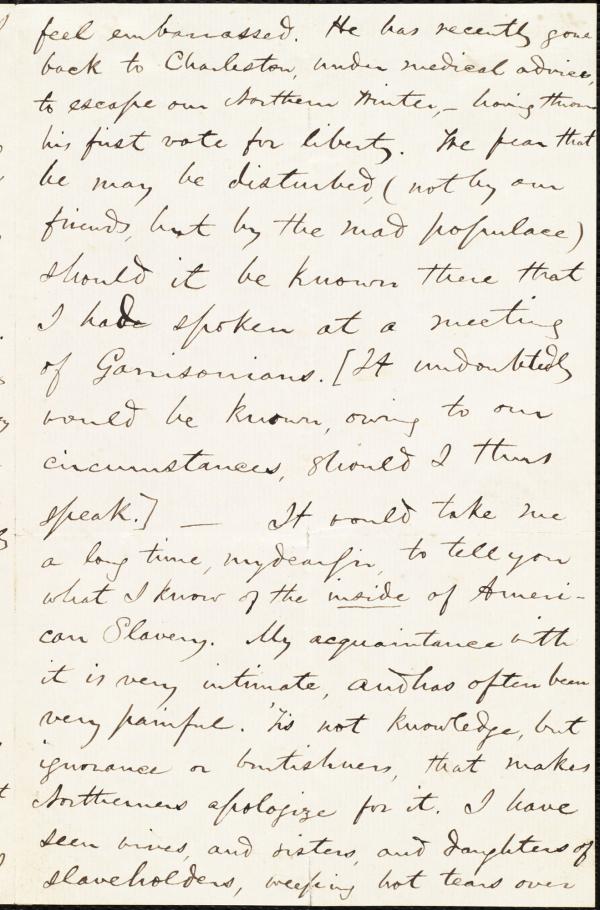 feel embarrassed. He has recently gone
back to Charleston, under medical advice,
to escape our Northern Winter, – having thrown
his first vote for liberty. We fear that
he may be disturbed, (not by our
friends, but by the mad populace)
should it be known there that
I had spoken at a meeting
of Garrisonians. [It undoubtedly
would be known, owing to our
circumstances, should I thus
speak.] — It would take me
a long time, my dear Sir, to tell you
what I know of the inside of Ameri-
can Slavery. My acquaintance with
it is very intimate, and has often been
very painful. 'Tis not knowledge, but
ignorance or brutishness, that makes
Northerners apologize for it. I have
seen wives, and sisters, and daughters of
slaveholders, weeping hot tears over